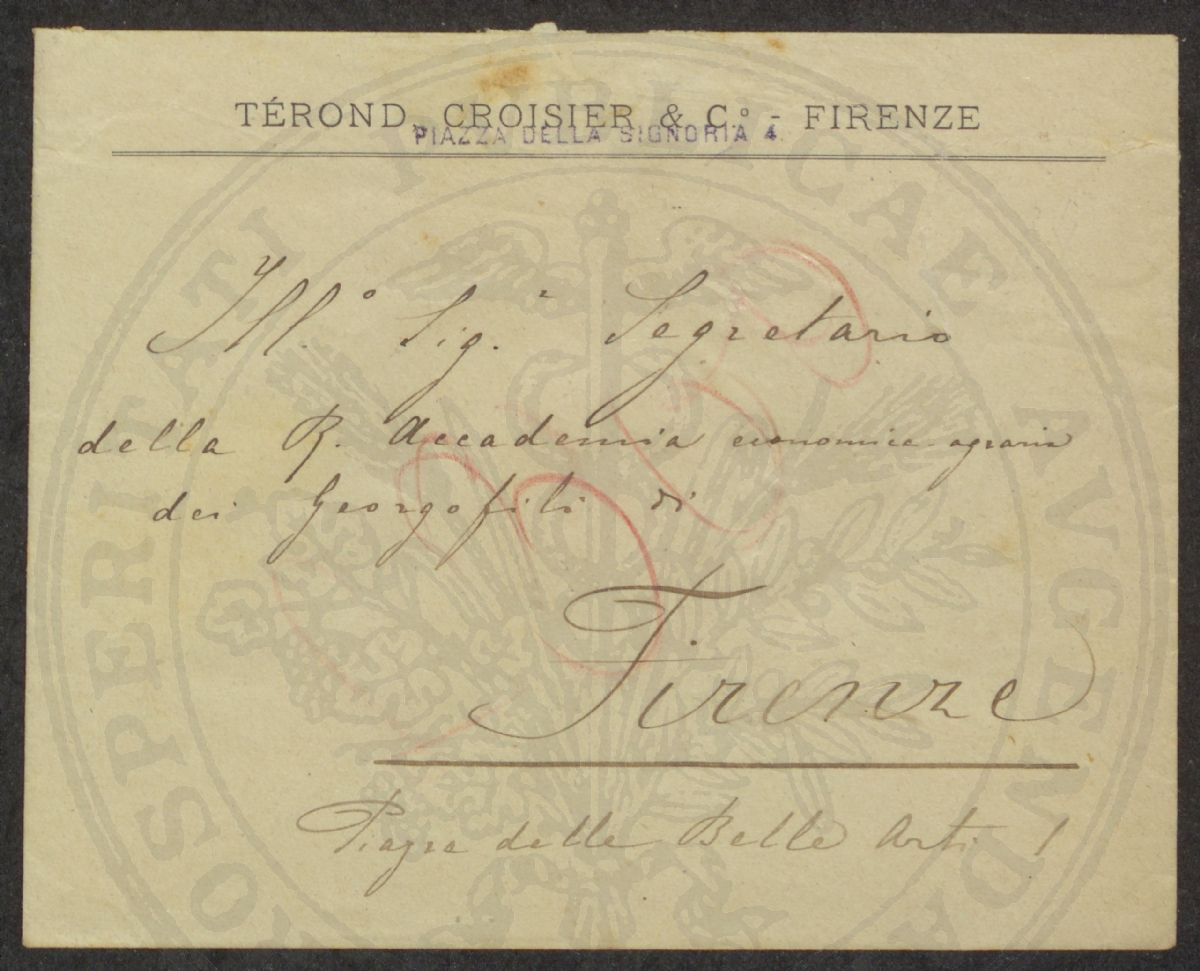 TÉROND, CROISIER & C.º - FIRENZE
PIAZZA DELLA SIGNORIA 4.
Ill.º Sig.r Segretario
della R. Accademia economico-agraria
dei Georgofili di
Firenze
Piazza delle Belle Arti 1
PROSPERITATI PUBLICAE AUGENDAE